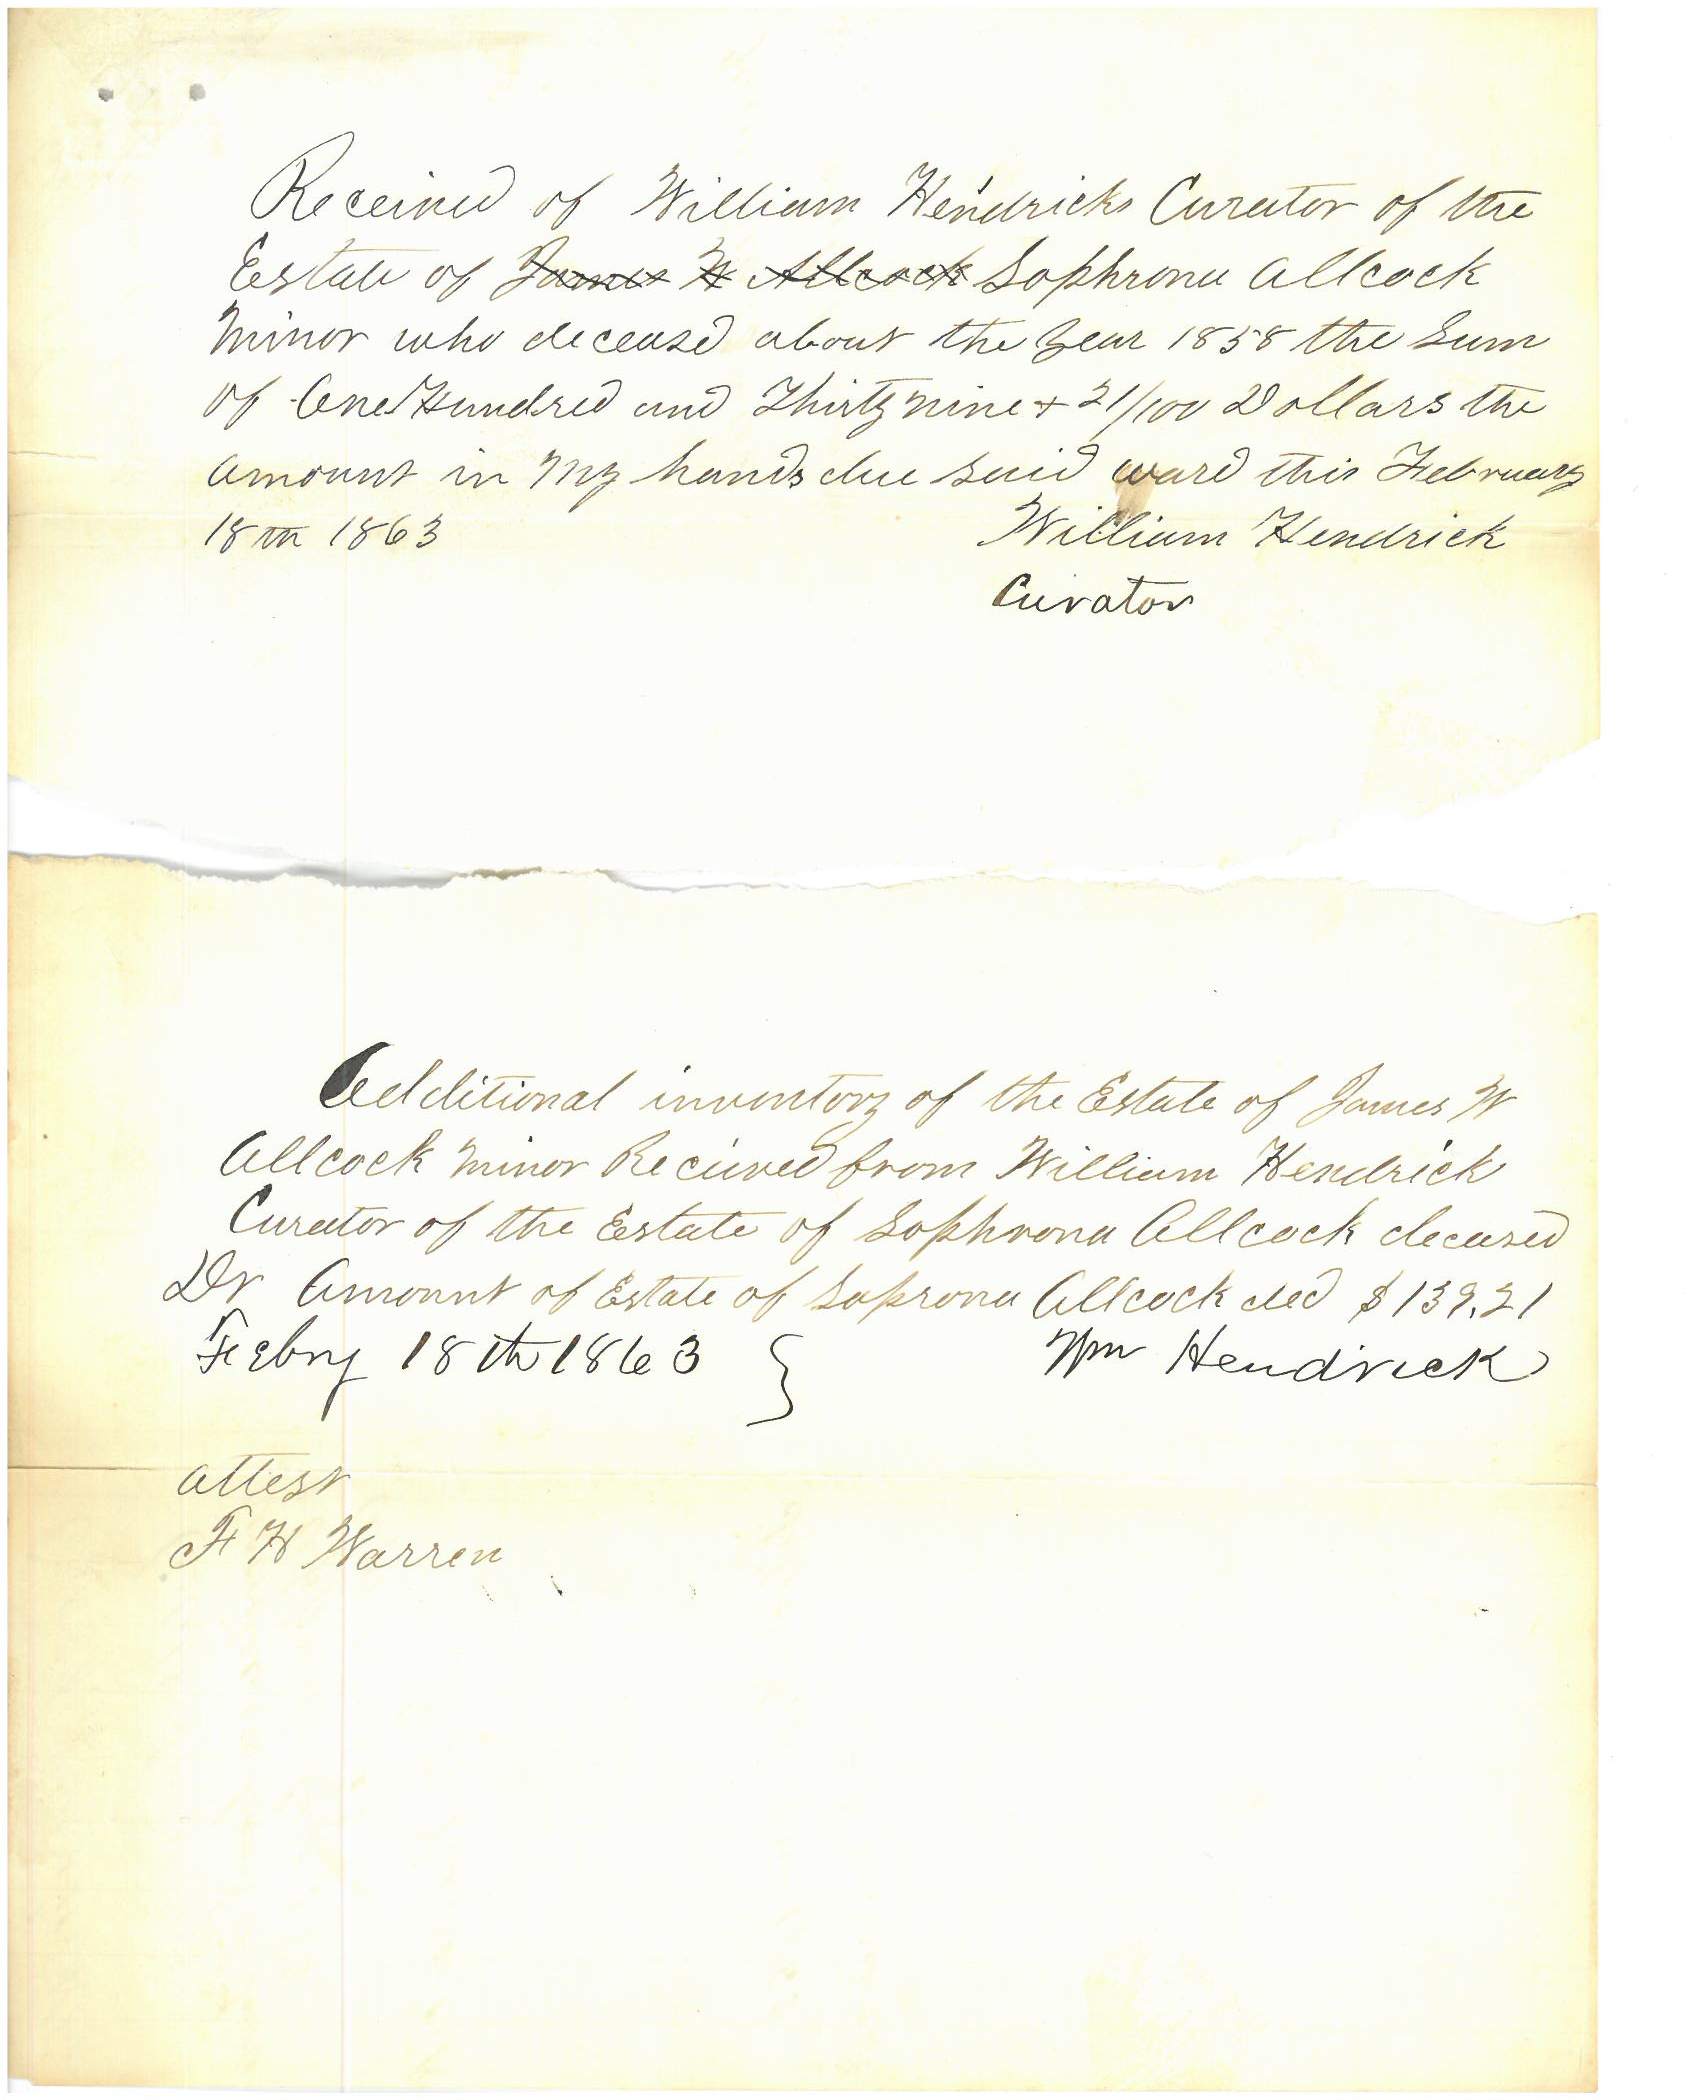 Received of William Hendricks Curator of the
Estate of James W Allcock Sophrona Allcock
Minor who deceasd about the year 1858 the Sum
of One Hundred and Thirty nine + 21/100 Dollars the
amount in My hands due said ward this February
18th 1863 William Hendrick
Curator
Additional inventory of the Estate of James W
Allcock Minor Recieved from William Hendrick
Curator of the Estate of Sophrona Allcock deceased
Dr Amount of Estate of Soprona Allcock decd $139.21
Feebry 18th 1863 } Wm Hendrick
attest
F H Warren